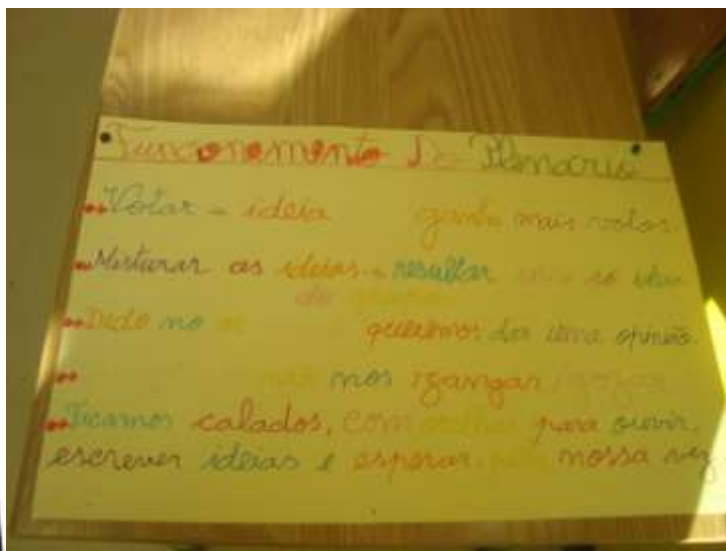 Funcionamento Do Plenário
Votar - ideia ganha mais votos.
Misturar as ideias - resultar só
do grupo
Dedo no queremos dar uma opinião.
não nos zangar/gozar
Ficamos calados, com orelhas para ouvir,
escrever ideias e esperar pela nossa vez